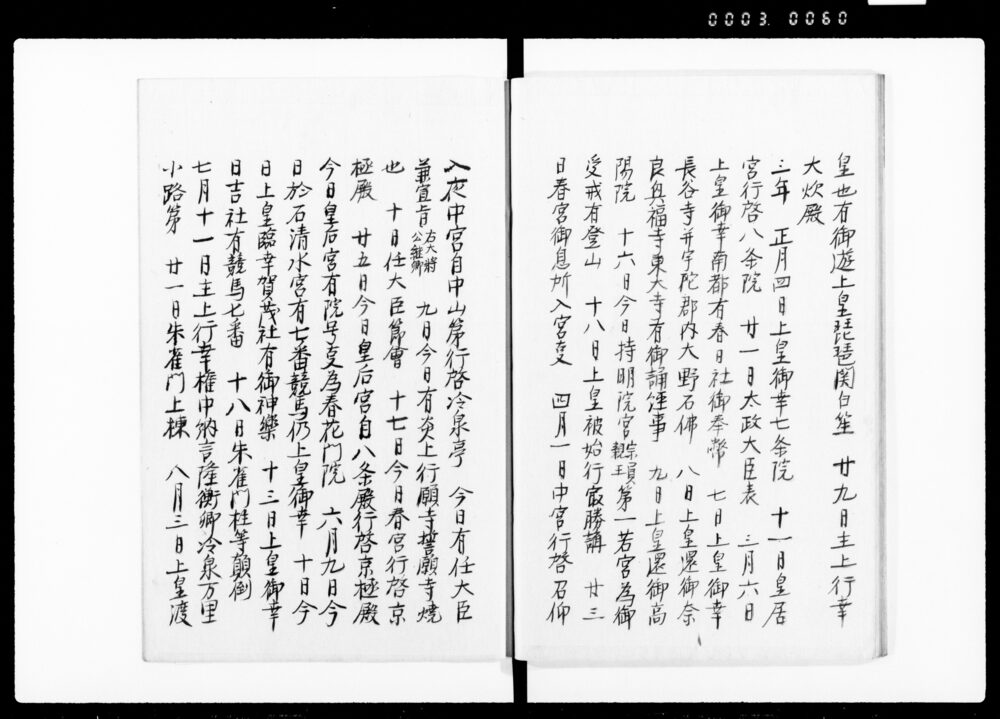 0003 0060
皇也有御遊上皇琵琶関白笙　廿九日主上行幸
大炊殿
三年　正月四日上皇御幸七条院　十一日皇居
宮行啓八条院　廿一日太政大臣表　三月六日
上皇御幸南都有春日社御奉幣　七日上皇御幸
長谷寺并宇陀郡内大野石佛　八日上皇還御奈
良興福寺東大寺有御誦経事　九日上皇還御高
陽院　十六日今日持明院宮宗員親王第一若宮為御
受戒有登山　十八日上皇被始行最勝講　廿三
日春宮御息所入宮事　四月一日中宮行啓召仰
入夜中宮自中山第行啓冷泉亭　今日有任大臣
兼宣旨右大将公継卿　九日今日有炎上行願寺誓願寺焼
也　十日任大臣節會　十七日今日春宮行啓京
極殿　廿五日今日皇后宮自八条殿行啓京極殿
今日皇后宮有院号事為春花門院　六月九日今
日於石清水宮有七番競馬仍上皇御幸　十日今
日上皇臨幸賀茂社有御神樂　十三日上皇御幸
日吉社有競馬七番　十八日朱雀門柱等顛倒
七月十一日主上行幸権中納言隆衡卿冷泉万里
小路第　廿一日朱雀門上棟　八月三日上皇渡